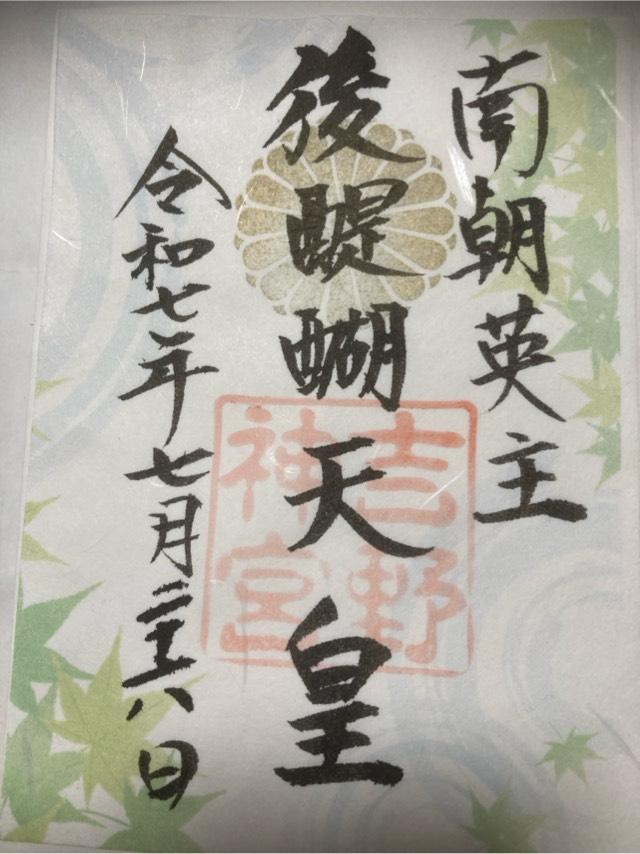 南朝英主
後醍醐天皇
令和七年七月二十八日
吉野
神宮